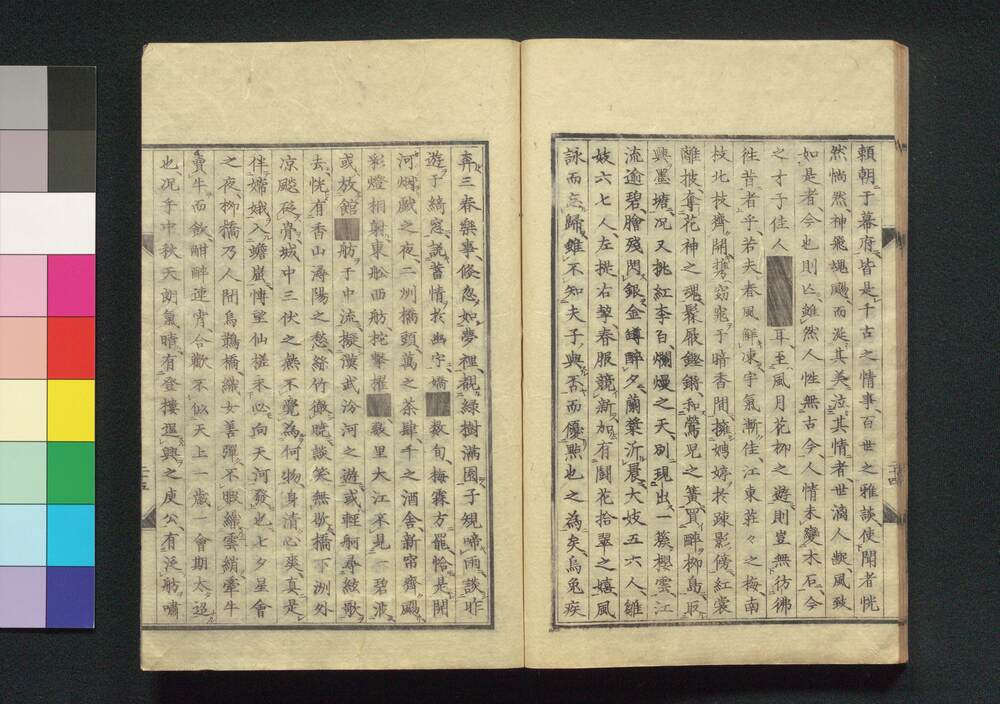 頼朝于幕府皆是千古之情事百世之雅談使聞者恍
然惝然神飛魂颺而涎其美泣其情者世漓人
風致
如是者今也則亡雖然人性無古今人情未變木石今
之才子佳人■■耳至風月花柳之遊則豈無彷彿
徃昔者乎若夫春風鮮凍宇氣漸佳江東莊々之梅南
枝北枝齊開携窈窕于暗香間擁娉婷於疎影傍紅裳
離披奪花神之魂鬆屐鏗鏘和鶯兒之簧買醉柳島取
興墨塘况又挑紅李白爛熳之天別現出一簇櫻雲江
流逾碧膾殘閃銀金罇醉夕蘭槳泝晨大妓五六人雛
妓六七人左提右挈春服競新加有鬪花拾翠之嬉風
詠而忘歸雖不知夫子與否而優㸃也之為矣烏兔疾
奔三春樂事倏忽如夢裡觀綠樹滿園子規啼雨識昨
遊于綺窓説蓄情於幽宇嬌■數旬梅霖方罷恰是開
河烟戲之夜二州橋頭萬之茶肆千之酒舎新帘齊颺
彩燈相射東船西舫柁擊櫂■數里大江不見一碧波
或放館■舫于中流擬漢武汾河之遊或輕舸尋絃歌
去恍有香山潯陽之愁絲竹徹曉談笑無歇橋下洲外
凉颷砭骨城中三伏之熱不覺為何物身清心爽真是
伴嫦娥入蟾嵐慱望仙槎禾必向天河發也七夕星會
之夜柳橋乃人間烏鵲橋織女善彈不暇繰雲綃牽牛
賣牛而飲酣醉連宵合歡不似天上一歲一會期太迢
也况乎中秋天朗氣晴有登樓逞興之庾公有泛舫嘯